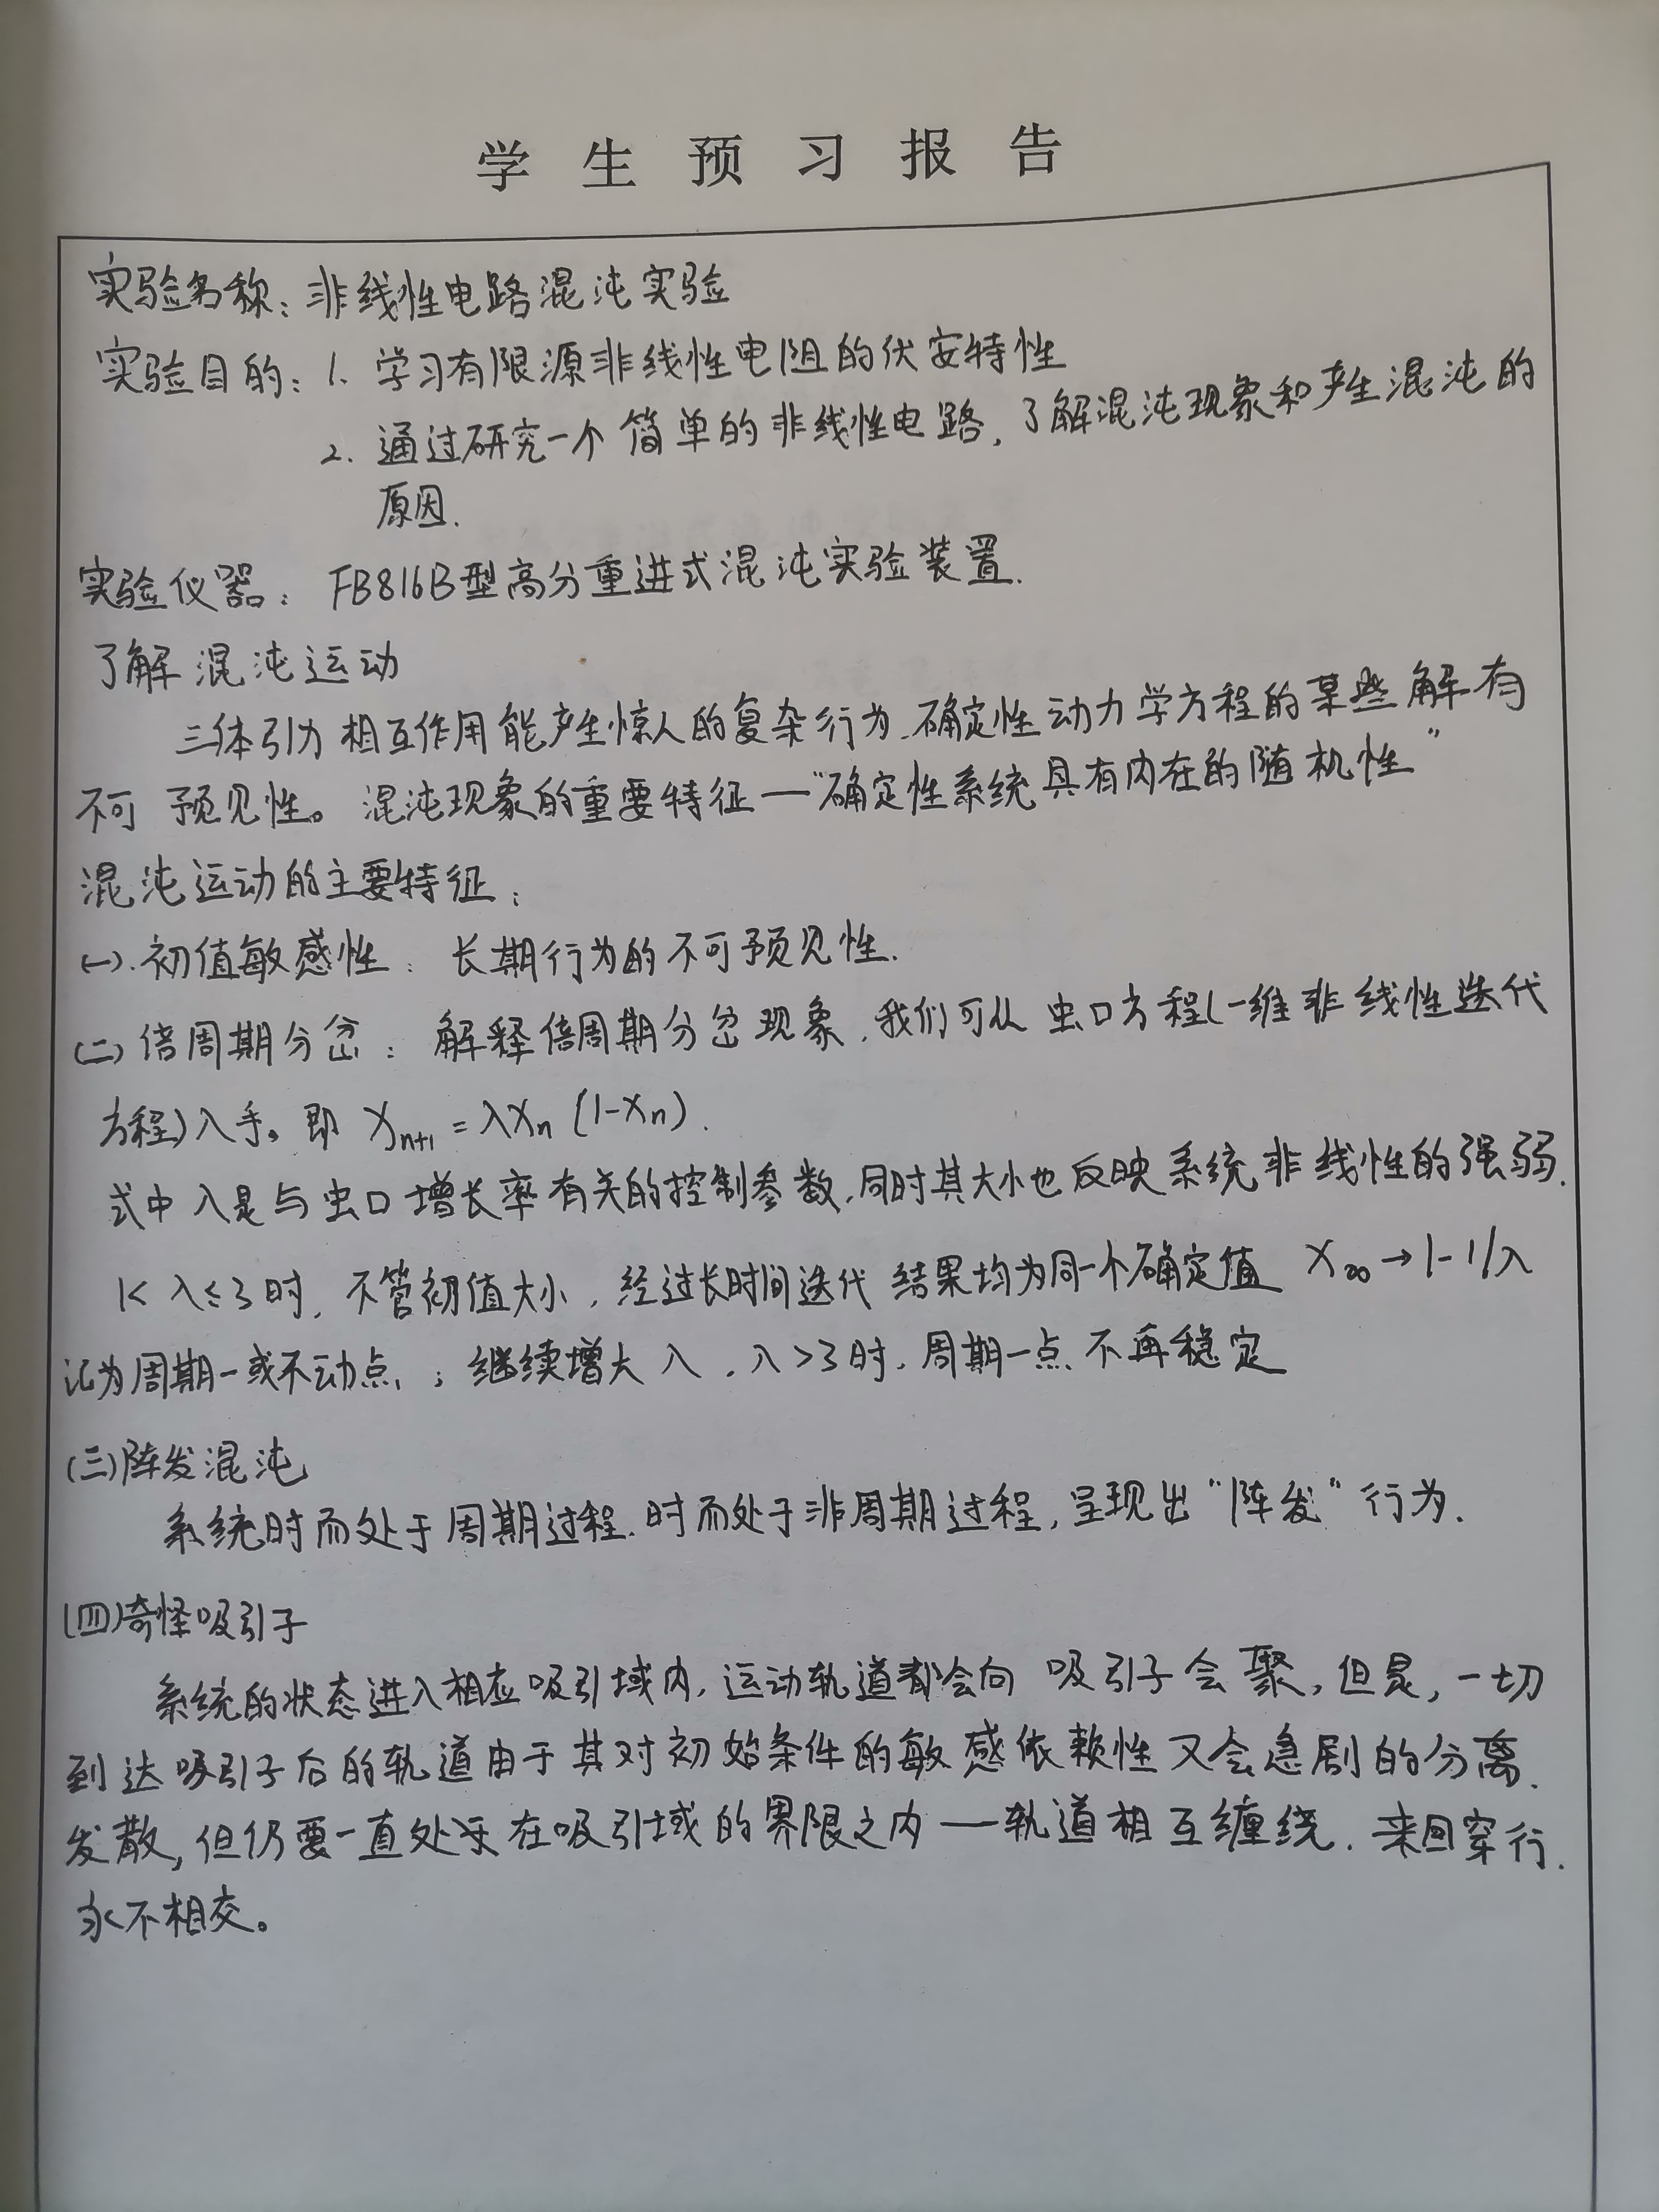 学生预习报告
实验名称：非线性电路混沌实验
实验目的：1. 学习有限源非线性电阻的伏安特性
2. 通过研究一个简单的非线性电路，了解混沌现象和产生混沌的
原因.
实验仪器：FB816B型高分重进式混沌实验装置.
了解混沌运动
三体引力相互作用能产生惊人的复杂行为.确定性动力学方程的某些解有
不可预见性。混沌现象的重要特征—“确定性系统具有内在的随机性”
混沌运动的主要特征：
(一).初值敏感性：长期行为的不可预见性.
(二)倍周期分岔：解释倍周期分岔现象，我们可从虫口方程(一维非线性迭代
方程)入手。即 Xn+1 = λXn (1-Xn).
式中λ是与虫口增长率有关的控制参数,同时其大小也反映系统非线性的强弱.
1< λ≤3时，不管初值大小，经过长时间迭代结果均为同一个确定值 X∞→1-1/λ
记为周期一或不动点；继续增大λ，λ>3时，周期一点不再稳定
(三)阵发混沌
系统时而处于周期过程.时而处于非周期过程，呈现出“阵发”行为.
(四)奇怪吸引子
系统的状态进入相应吸引域内，运动轨道都会向吸引子会聚，但是，一切
到达吸引子后的轨道由于其对初始条件的敏感依赖性又会急剧的分离.
发散，但仍要一直处在吸引域的界限之内—轨道相互缠绕.来回穿行.
永不相交。